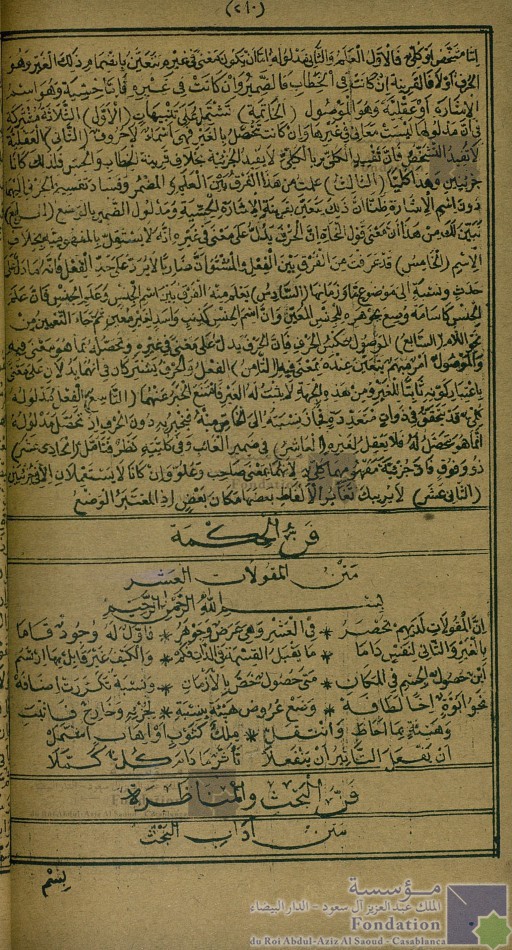 (٢١٠)
إما مشخص أو كلي فالأول العلم والثاني مدلوله إما أن يكون معنى في غيره يتعين بانضمام ذلك الغير وهو
الحرف أولا فالقرينة إن كانت في الخطاب فالضمير وإن كانت في غيره فإما حسية وهو اسم
الإشارة أو عقلية وهو الموصول (الخاتمة) تشتمل على تنبيهات (الأول) الثلاثة مشتركة
في أن مدلولها ليست معاني في غيرها وإن كانت تتحصل بالغير فهي أسماء لا حروف (الثاني) العقلية
لا تفيد التشخص فإن تقييد الكلي بالكلي لا يفيد الجزئية بخلاف قرينة الخطاب والحس فلذلك كانا
جزئيين وهذا كليا (الثالث) علمت من هذا الفرق بين العلم والمضمر وفساد تقسيم الجزئي إليهما
دون اسم الإشارة ظنا أن ذلك يتعين بقرينة الإشارة الحسية ومدلول الضمير بالوضع (الرابع)
تبين لك من هذا أن معنى قول النحاة إن الحرف يدل على معنى في غيره أنه لا يستقل بالمفهومية بخلاف
الاسم (الخامس) قد عرفت من الفرق بين الفعل والمشتق أن ضاربا لا يرد على حد الفعل فإنه ما دل على
حدث ونسبة إلى موضوع ما وزمانها (السادس) يعلم منه الفرق بين اسم الجنس وعلم الجنس فإن علم
الجنس كأسامة وضع بجوهره للجنس المعين وإن اسم الجنس كذيب وأسد لغير معين ثم جاء التعيين من
نحو اللام (السابع) الموصول عكس الحرف فإن الحرف يدل على معنى في غيره وتحصله بما هو معنى فيه
والموصول أمر مبهم يتعين عنده بمعنى فيه (الثامن) الفعل والحرف يشتركان في أنهما يدلان على معنى
باعتبار كونه ثابتا للغير ومن هذه الجهة لا يثبت له الغير فامتنع الخبر عنهما (التاسع) الفعل مدلوله
كلي قد يتحقق في ذوات متعددة فجاز نسبته إلى الخاص منه فيخبر به دون الحرف إذ تحصل مدلوله
إنما هو بحصل له فلا يعقل لغيره (العاشر) في ضمير الغائب وفي كليته نظر فتأمل (الحادي عشر)
ذو وفوق مفهومهما كلي لأنهما بمعنى صاحب وعلو وإن كانا لا يستعملان إلا في جزئيين
(الثاني عشر) لا يريبك تعاور الألفاظ بعضها مكان بعض إذ المعتبر الوضع
فن الحكمة
متن المقولات العشر
بسم الله الرحمن الرحيم
إن المقولات لديهم تحصر * في العشر وهي عرض وجوهر * فأول له وجود قاما
بالغير والثاني لنفس داما * ما يقبل القسمة بالذات فكم * والكيف غير قابل بها ارتسم
أين حصول الجسم في المكان * متى حصول خص بالأزمان * ونسبة تكررت إضافة
نحو أبوة إخا لطافة * وضع عروض هيئة بنسبة * لجزئه وخارج فأثبت
وهيئة بما أحاط وانتقل * ملك كثوب أو إهاب اشتمل
أن يفعل التأثير أن ينفعلا * تأثر ما دام كل كملا
فن البحث والمناظرة
متن آداب البحث
بسم
مؤسسة
الملك عبد العزيز آل سعود - الدار البيضاء
Fondation
du Roi Abdul-Aziz Al Saoud - Casablanca